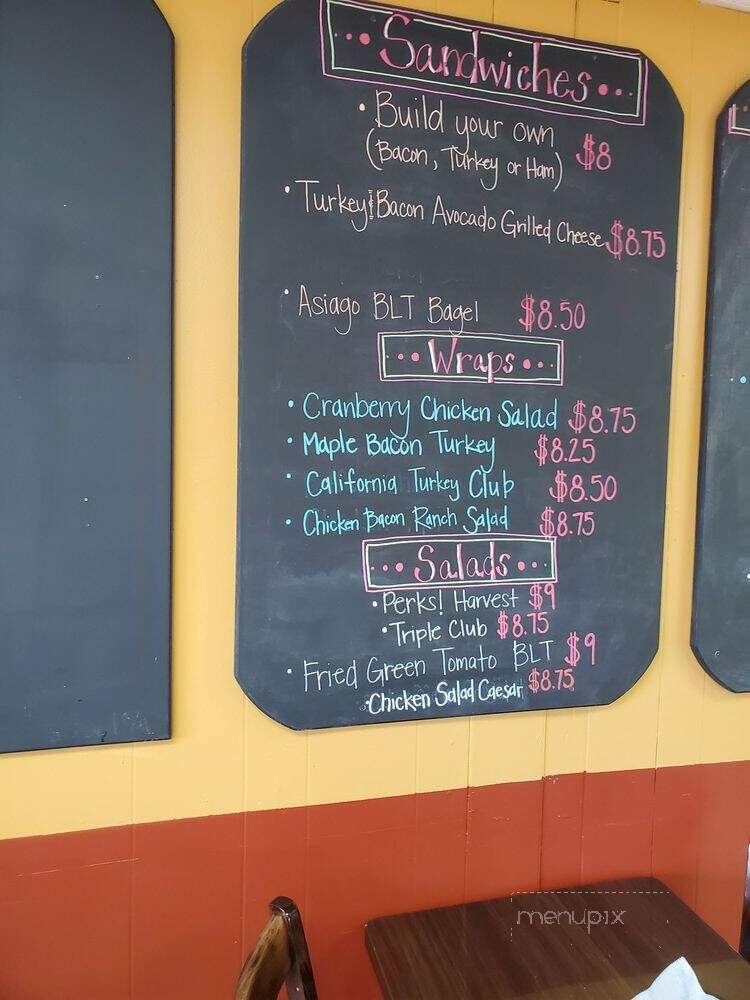 Sandwiches
• Build your own
(Bacon, Turkey or Ham) $8
• Turkey & Bacon Avocado Grilled Cheese $8.75
• Asiago BLT Bagel $8.50
Wraps
• Cranberry Chicken Salad $8.75
• Maple Bacon Turkey $8.25
• California Turkey Club $8.50
• Chicken Bacon Ranch Salad $8.75
Salads
• Perks! Harvest $9
• Triple Club $8.75
• Fried Green Tomato BLT $9
• Chicken Salad Caesar $8.75
menupix